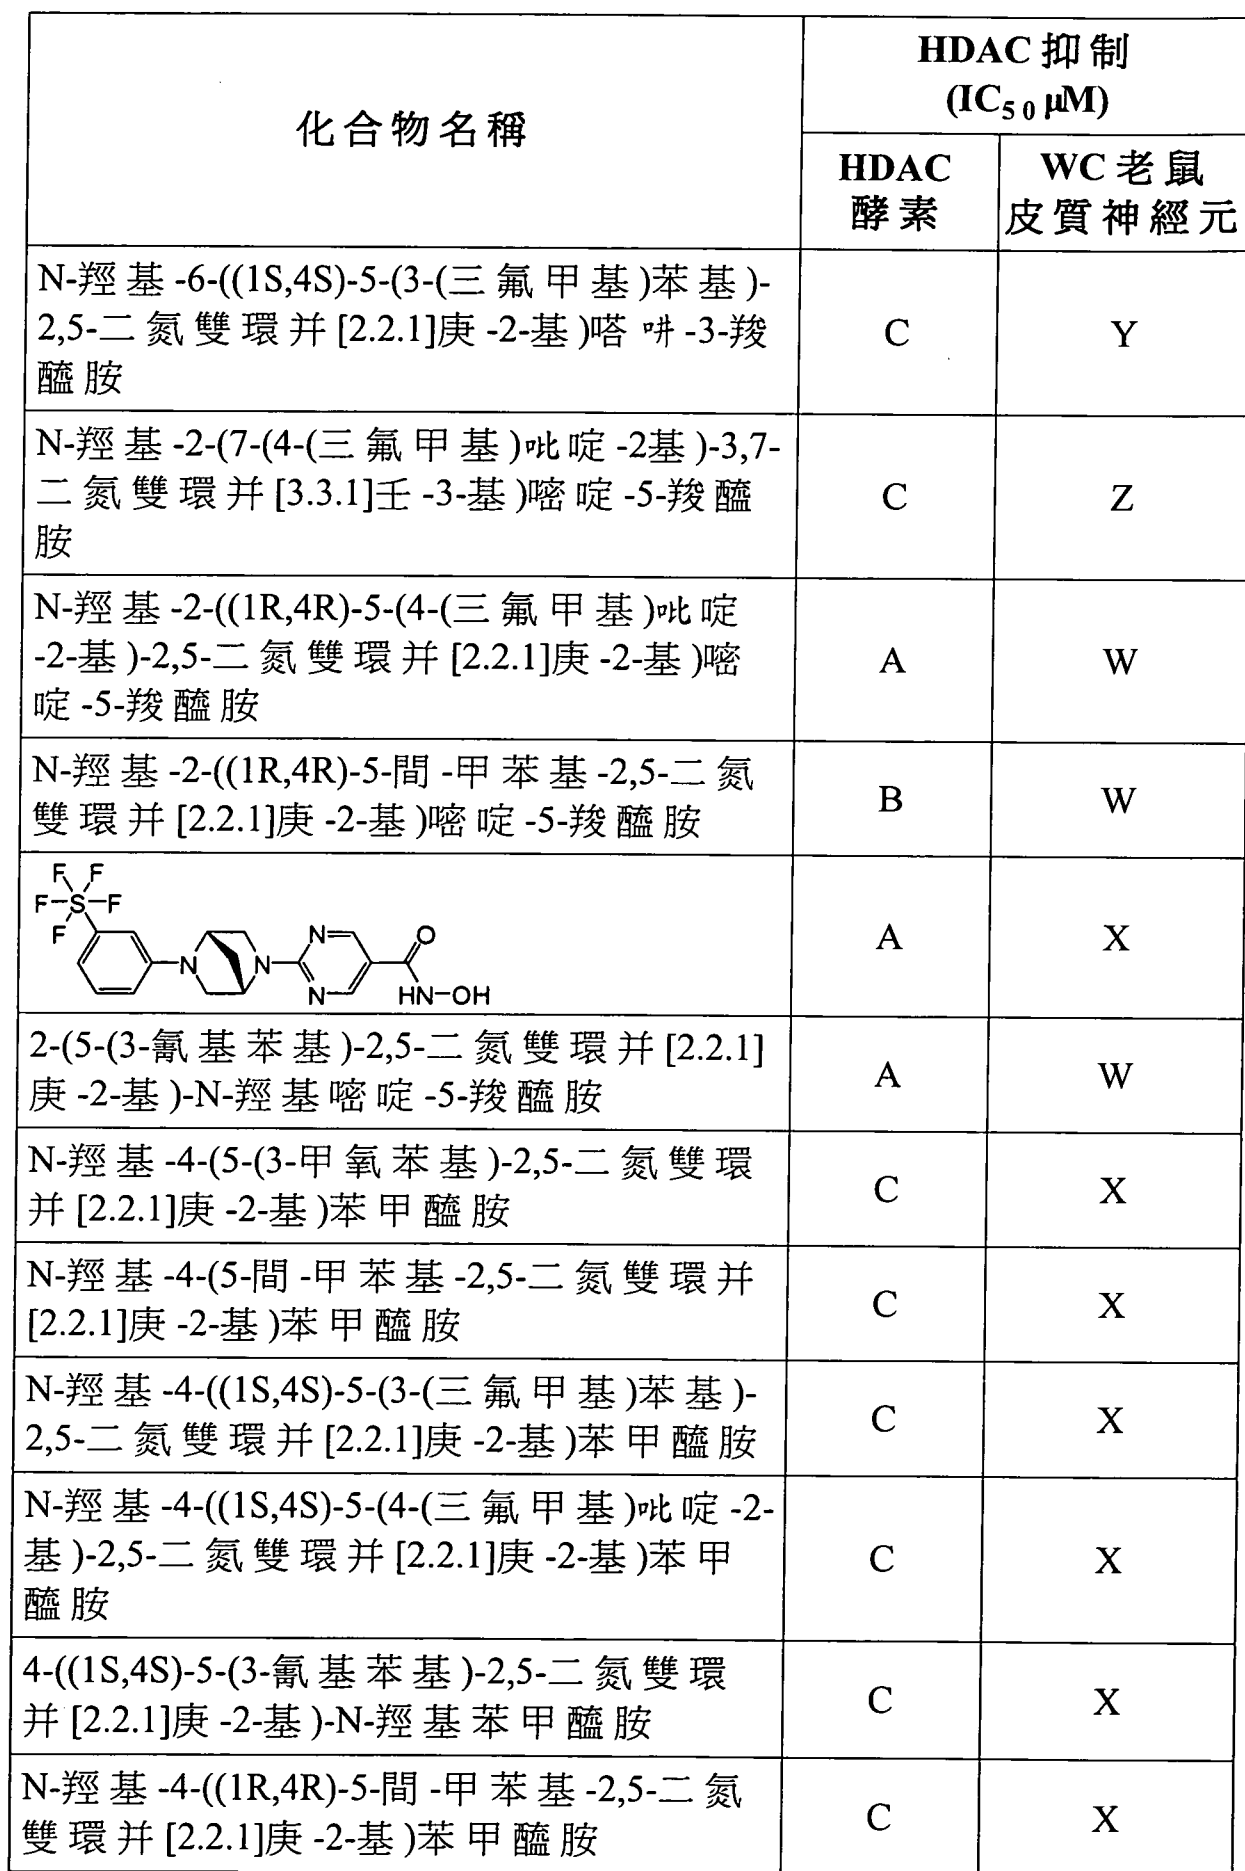 化合物名稱
HDAC 抑制
(IC50 μM)
HDAC
酵素
WC 老鼠
皮質神經元
N-羥基-6-((1S,4S)-5-(3-(三氟甲基)苯基)-
2,5-二氮雙環并[2.2.1]庚-2-基)嗒吽-3-羧
醯胺
C
Y
N-羥基-2-(7-(4-(三氟甲基)吡啶-2基)-3,7-
二氮雙環并[3.3.1]壬-3-基)嘧啶-5-羧醯
胺
C
Z
N-羥基-2-((1R,4R)-5-(4-(三氟甲基)吡啶
-2-基)-2,5-二氮雙環并[2.2.1]庚-2-基)嘧
啶-5-羧醯胺
A
W
N-羥基-2-((1R,4R)-5-間-甲苯基-2,5-二氮
雙環并[2.2.1]庚-2-基)嘧啶-5-羧醯胺
B
W
F F
F S F
F
N N
N
N
O
HN-OH
A
X
2-(5-(3-氰基苯基)-2,5-二氮雙環并[2.2.1]
庚-2-基)-N-羥基嘧啶-5-羧醯胺
A
W
N-羥基-4-(5-(3-甲氧苯基)-2,5-二氮雙環
并[2.2.1]庚-2-基)苯甲醯胺
C
X
N-羥基-4-(5-間-甲苯基-2,5-二氮雙環并
[2.2.1]庚-2-基)苯甲醯胺
C
X
N-羥基-4-((1S,4S)-5-(3-(三氟甲基)苯基)-
2,5-二氮雙環并[2.2.1]庚-2-基)苯甲醯胺
C
X
N-羥基-4-((1S,4S)-5-(4-(三氟甲基)吡啶-2-
基)-2,5-二氮雙環并[2.2.1]庚-2-基)苯甲
醯胺
C
X
4-((1S,4S)-5-(3-氰基苯基)-2,5-二氮雙環
并[2.2.1]庚-2-基)-N-羥基苯甲醯胺
C
X
N-羥基-4-((1R,4R)-5-間-甲苯基-2,5-二氮
雙環并[2.2.1]庚-2-基)苯甲醯胺
C
X